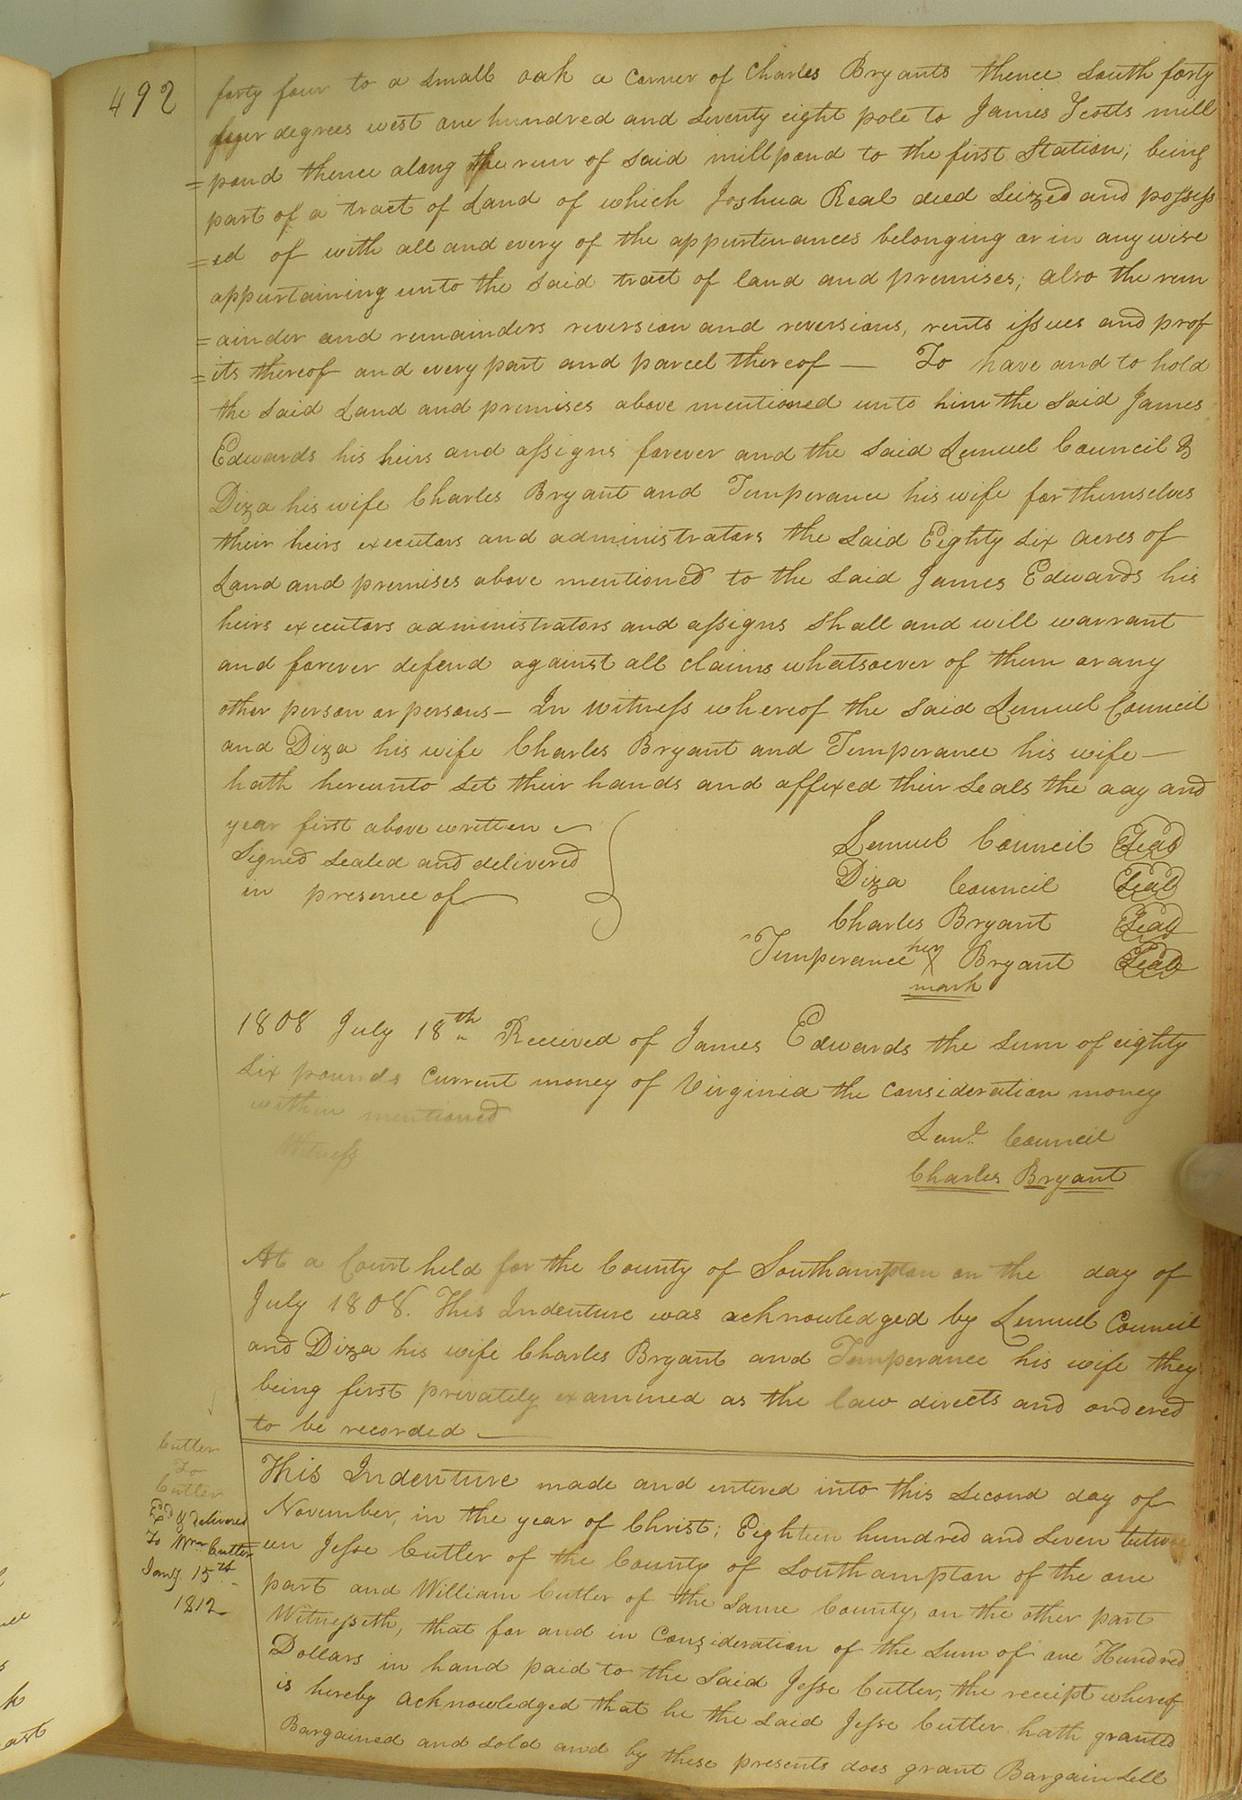 492
forty four to a small oak a corner of Charles Bryants thence South forty
four degrees west one hundred and seventy eight pole to James Scotts mill
= pond thence along the run of said millpond to the first Station, being
part of a tract of Land of which Joshua Beal deed Seized and possess
= ed of with all and every of the appurtenances belonging or in any wise
appurtaining unto the said tract of land and premises, also the rem
= ainder and remainders reversion and reversions, rents issues and prof
= its thereof and every part and parcel thereof — To have and to hold
the said Land and premises above mentioned unto him the said James
Edwards his heirs and assigns forever and the said Lemuel Council &
Diza his wife Charles Bryant and Temperance his wife for themselves
their heirs executors and administrators the said Eighty six acres of
Land and premises above mentioned to the said James Edwards his
heirs executors administrators and assigns shall and will warrant
and forever defend against all claims whatsoever of them or any
other person or persons — In witness whereof the said Lemuel Council
and Diza his wife Charles Bryant and Temperance his wife —
hath hereunto set their hands and affixed their seals the day and
year first above written
Signed sealed and delivered
in presence of
Lemuel Council Seal
Diza Council Seal
Charles Bryant Seal
Temperance her X Bryant Seal
mark
1808 July 18th Received of James Edwards the sum of eighty
six pounds current money of Virginia the consideration money
within mentioned
Witness
Leml Council
Charles Bryant
At a Court held for the County of Southampton on the day of
July 1808. This Indenture was acknowledged by Lemuel Council
and Diza his wife Charles Bryant and Temperance his wife they
being first privately examined as the law directs and ordered
to be recorded —
Cutler
To
Cutler
Exd & delivered
To Wm Cutler
Jany 15th
1812
This Indenture made and entered into this second day of
November, in the year of Christ; Eighteen hundred and seven betwe
= en Jesse Cutler of the County of Southampton of the one
part and William Cutler of the same County, on the other part
Witnesseth, that for and in consideration of the sum of one Hundred
Dollars in hand paid to the said Jesse Cutler, the receipt whereof
is hereby acknowledged that he the said Jesse Cutler hath granted
Bargained and sold and by these presents does grant Bargain sell